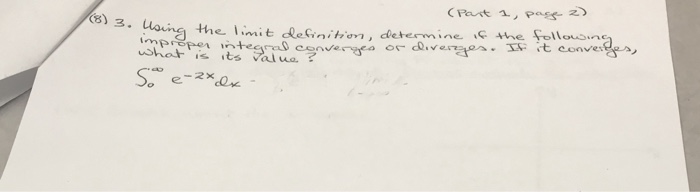 (Part 1, page 2)
(8) 3. Using the limit definition, determine if the following
improper integral converges or diverges. If it converges,
what is its value?
∫₀^∞ e^-2x dx